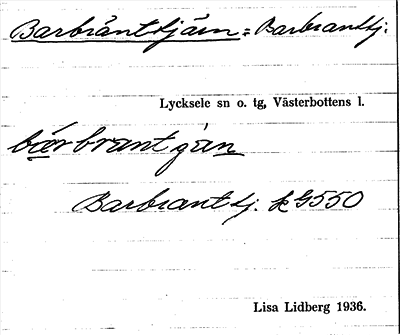 Barbránttjärn = Barbranttj.
Lycksele sn o. tg, Västerbottens l.
bárbrant
Barbrant tj. k G550
Lisa Lidberg 1936.